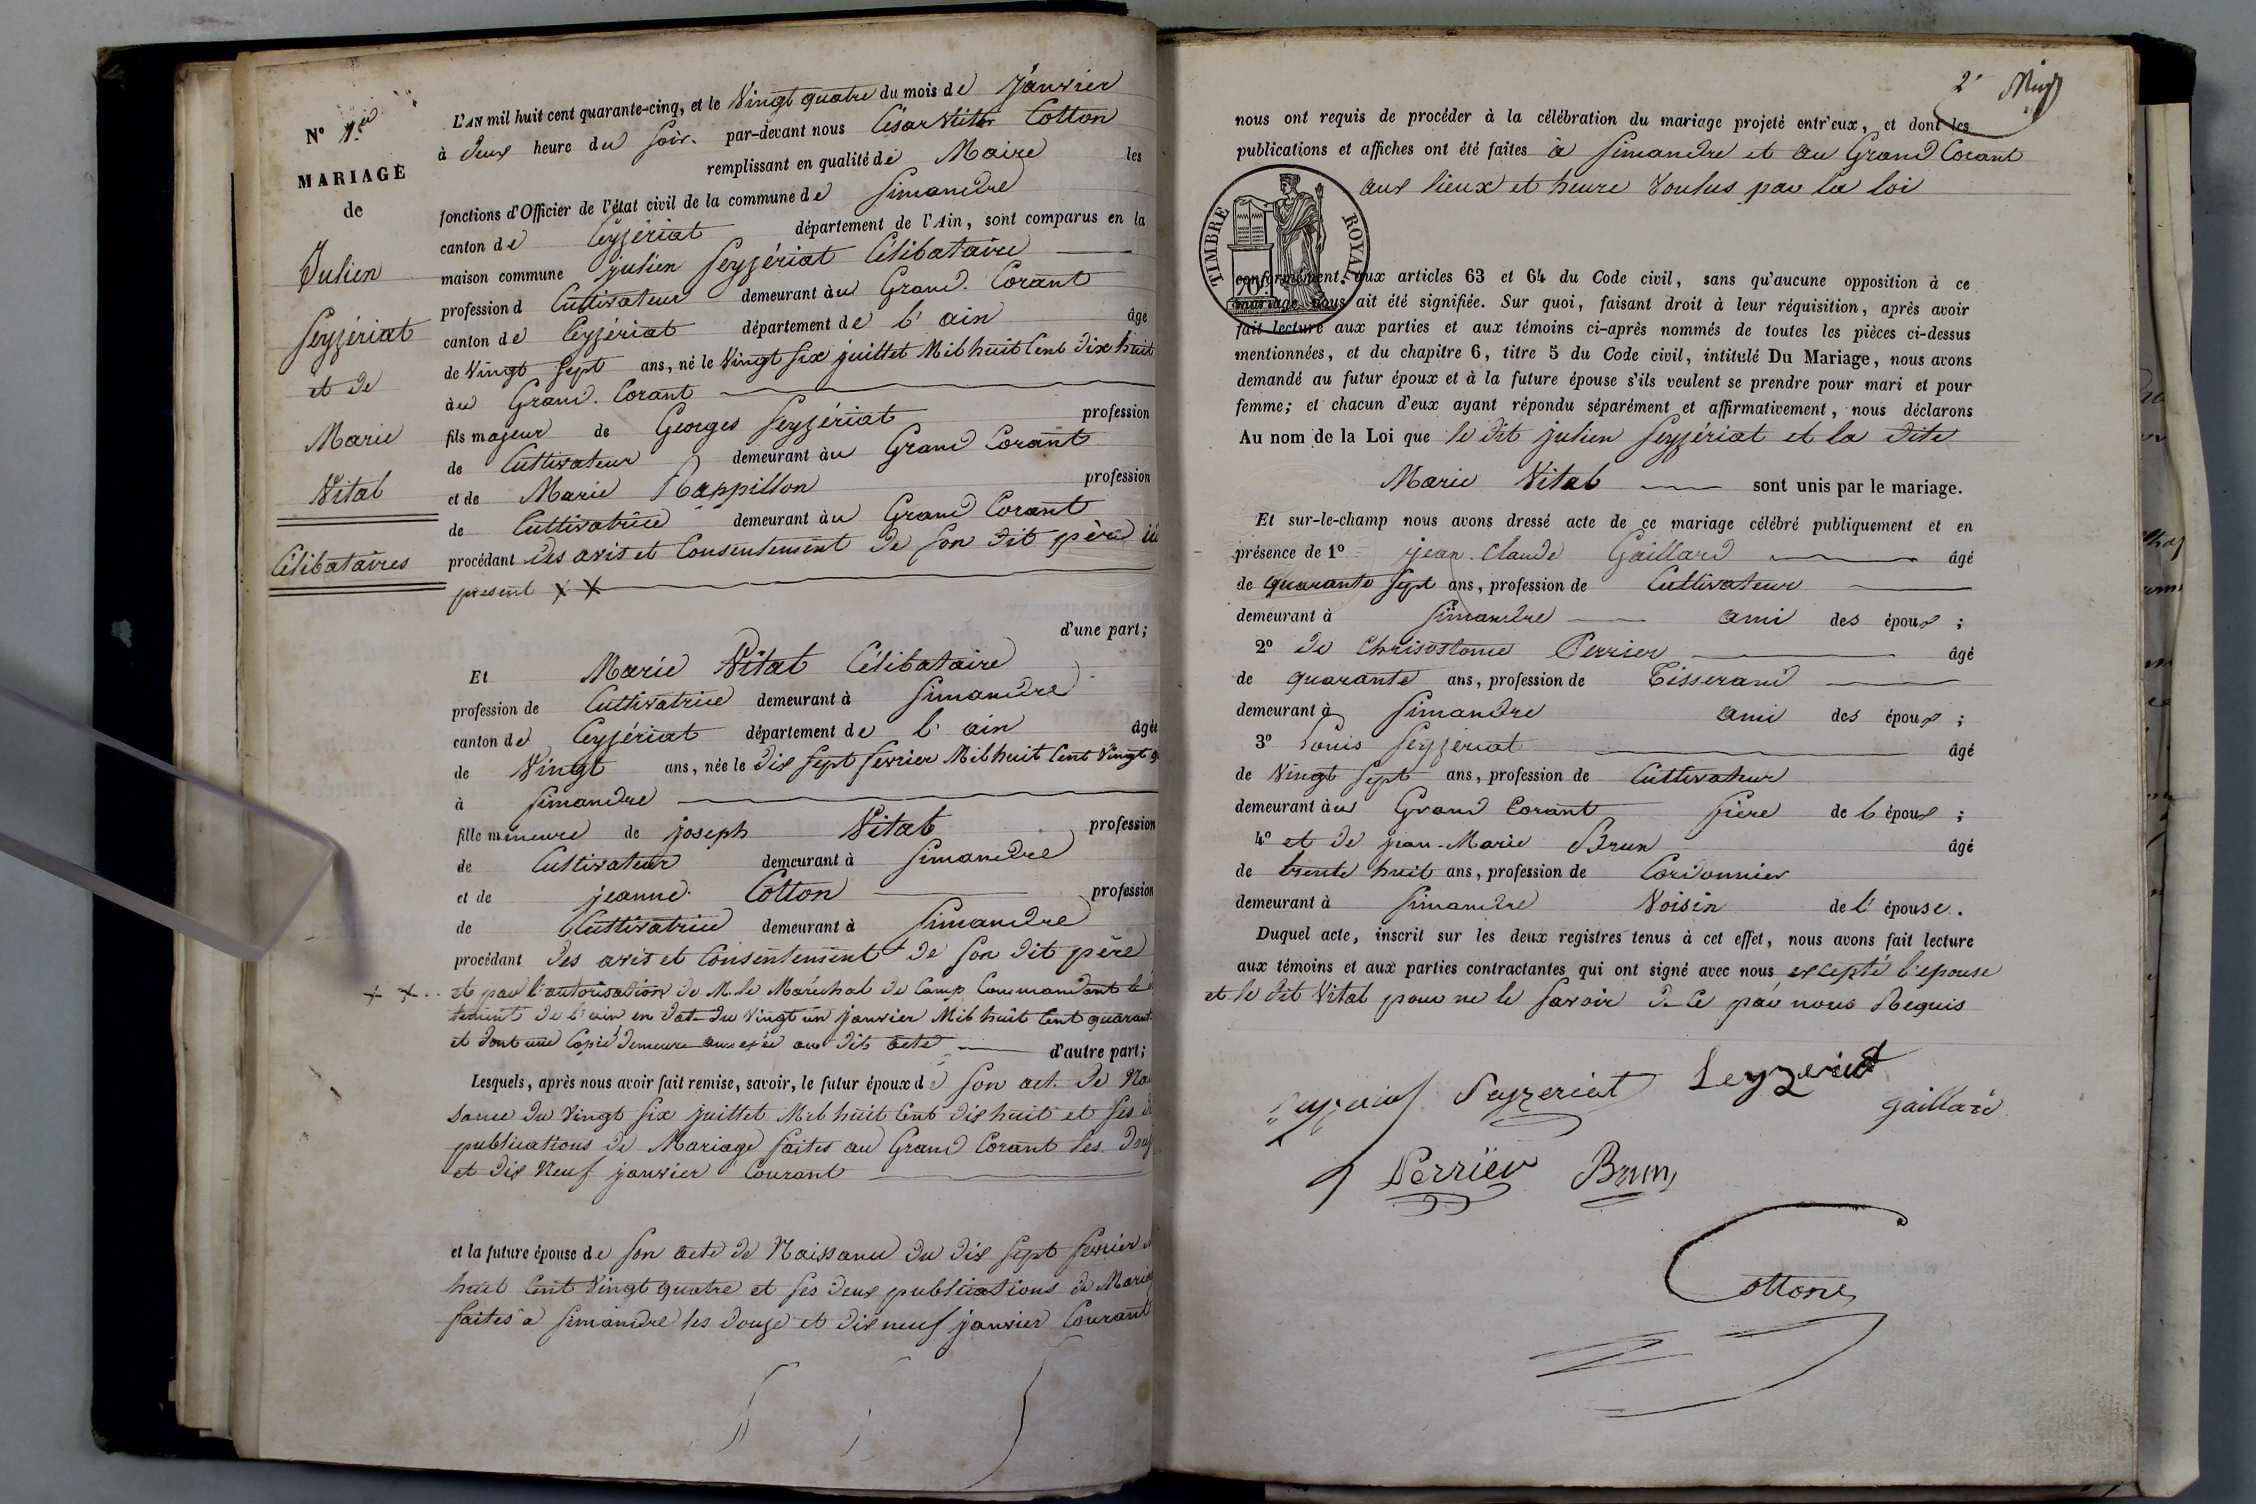 N° 1er
MARIAGE
de
Julien
Seyzériat
et de
Marie
Vital
Célibataires
L'AN mil huit cent quarante-cinq, et le Vingt quatre du mois de Janvier
à deux heure du soir. par-devant nous César Cotton
remplissant en qualité de Maire les
fonctions d'Officier de l'état civil de la commune de Simandre
canton de Ceyzériat département de l'Ain, sont comparus en la
maison commune julien Seyzériat Célibataire
profession d Cultivateur demeurant àu Grand. Corant
canton de Ceyzériat département de l'ain âgé
de Vingt Sept ans, né le Vingt six juillet Mil huit Cent dix huit
àu Grand. Corant
fils majeur de Georges Seyzériat profession
de Cultivateur demeurant àu Grand Corant
et de Marie Rappillon profession
de Cultivatrice demeurant àu Grand Corant
procédant des avis et Consentement de son dit père ici
present ++
d'une part;
Et Marie Vital Célibataire
profession de Cultivatrice demeurant à Simandre
canton de Ceyzériat département de l'ain âgée
de Vingt ans, née le dix sept fevrier Mil huit Cent Vingt
à Simandre
fille mineure de joseph Vital profession
de Cultivateur demeurant à Simandre
et de jeanne. Cotton profession
de Cultivatrice demeurant à Simandre
procédant des avis et Consentement de son dit père
+ +.. et par l'autorisation de M. le Maréchal de Camp Commandant le
tement de l'ain en date du Vingt un janvier Mil huit Cent quarant
et dont une Copie demeure annexée au dit acte d'autre part;
Lesquels, après nous avoir fait remise, savoir, le futur époux de son act. de Nai
sance du Vingt six juillet Mil huit Cent dix huit et ses d
publications de Mariage faites au Grand Corant les douz
et dix Neuf janvier Courant
et la future épouse de son acte de Naissance du dix sept fevrier
huit Cent Vingt quatre et ses deux publications de Mariag
faites à Simandre les douze et dix neuf janvier Courant
2e
nous ont requis de procéder à la célébration du mariage projeté entr'eux, et dont les
publications et affiches ont été faites à Simandre et au Grand Corant
aux lieux et heure Voulus par la loi
TIMBRE ROYAL
conformément aux articles 63 et 64 du Code civil, sans qu'aucune opposition à ce
mariage nous ait été signifiée. Sur quoi, faisant droit à leur réquisition, après avoir
fait lecture aux parties et aux témoins ci-après nommés de toutes les pièces ci-dessus
mentionnées, et du chapitre 6, titre 5 du Code civil, intitulé Du Mariage, nous avons
demandé au futur époux et à la future épouse s'ils veulent se prendre pour mari et pour
femme; et chacun d'eux ayant répondu séparément et affirmativement, nous déclarons
Au nom de la Loi que le dit julien Seyzériat et la dite
Marie Vital sont unis par le mariage.
Et sur-le-champ nous avons dressé acte de ce mariage célébré publiquement et en
présence de 1° jean-Claude Gaillard âgé
de quarante sept ans, profession de Cultivateur
demeurant à Simandre ami des époux ;
2° de Chrisostome Perrier âgé
de quarante ans, profession de Tisserand
demeurant à Simandre ami des époux ;
3° Louis Seyzériat âgé
de Vingt Sept ans, profession de Cultivateur
demeurant àu Grand Corant frère de l'époux ;
4° et de jean-Marie Brun âgé
de trente huit ans, profession de Cordonnier
demeurant à Simandre Voisin de l'épouse.
Duquel acte, inscrit sur les deux registres tenus à cet effet, nous avons fait lecture
aux témoins et aux parties contractantes qui ont signé avec nous excepté l'épouse
et le dit Vital pour ne le savoir de ce par nous Requis
Seyzeriat Seyzeriat
gaillard
Perrier Brun
Cotton